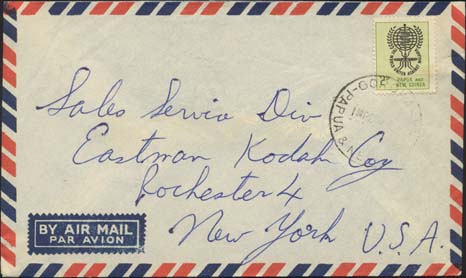 PAPUA AND
NEW GUINEA
Sales Servia Div
Eastman Kodak Coy
Rochester 4
New York U.S.A.
BY AIR MAIL
PAR AVION